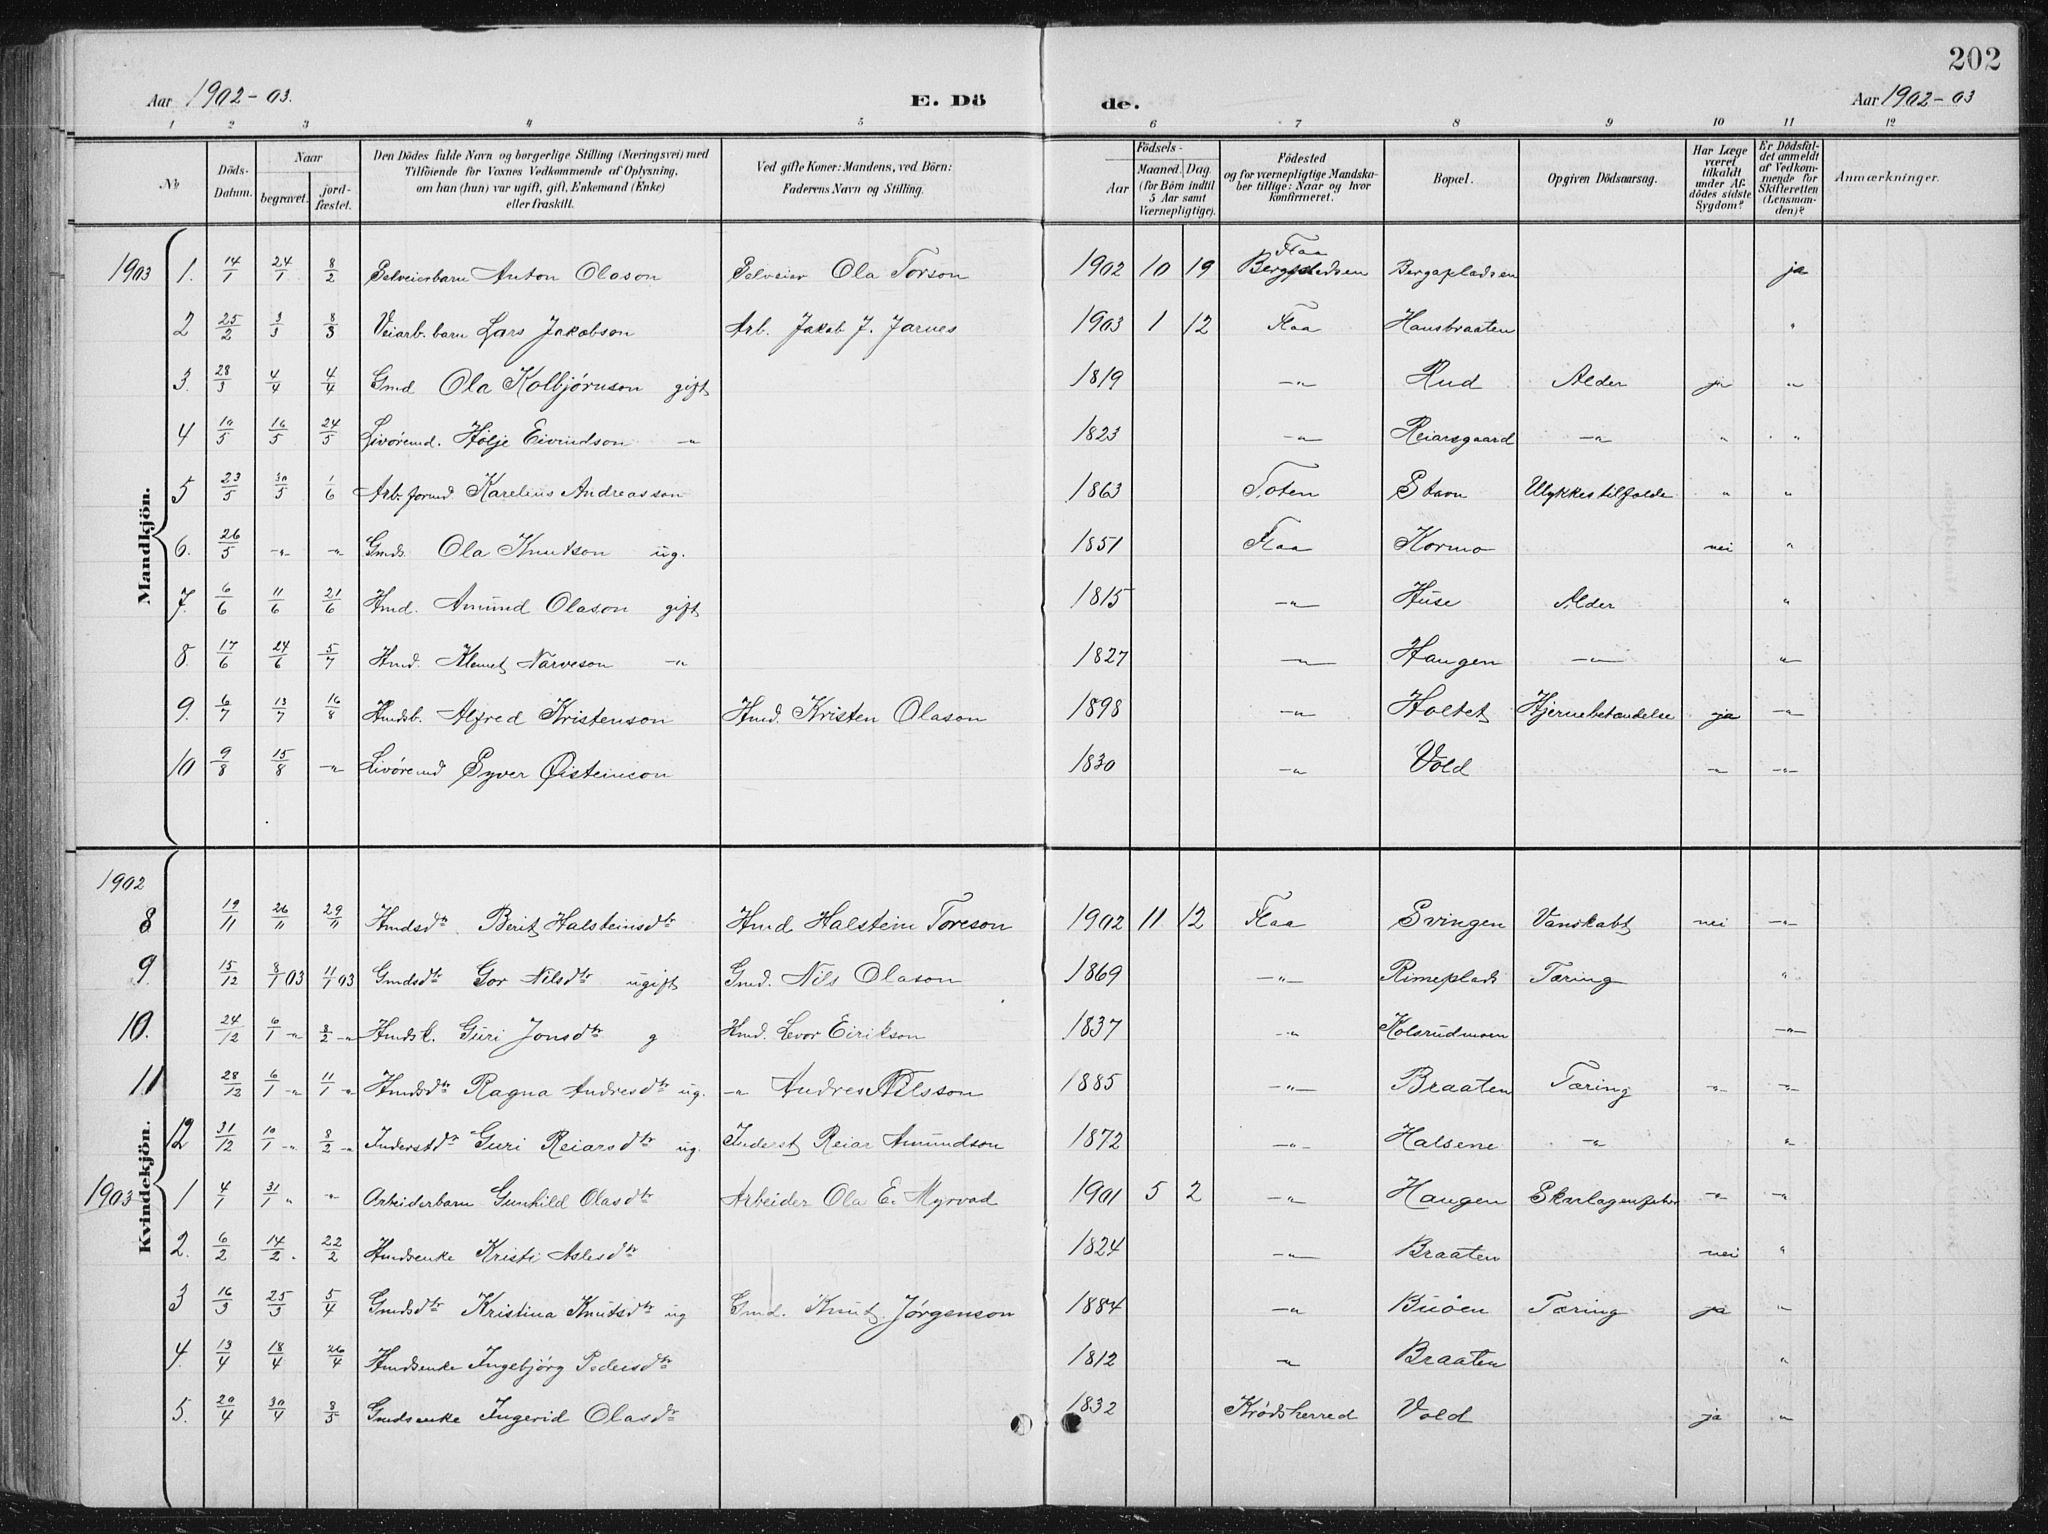 202
Aar 1902-03. E. Dö de. Aar 1902-03
1 2 3 4 5 6 7 8 9 10 11 12
No Döds-Datum. Naar begravet. jord-fæstet. Den Dödes fulde Navn og borgerlige Stilling (Næringsvei) med Tilföiende for Voxnes Vedkommende af Oplysning, om han (hun) var ugift, gift, Enkemand (Enke) eller fraskilt. Ved gifte Koner: Mandens, ved Börn: Faderens Navn og Stilling. Födsels- Aar Maaned. Dag (for Börn indtil 5 Aar samt Værnepligtige). Födested og for værnepligtige Mandska-ber tillige: Naar og hvor konfirmeret. Bopæl. Opgiven Dödsaarsag. Har Læge været tilkaldt under Af-dödes sidste Sygdom? Er Dödsfal-det anmeldt af Vedkom-mende for Skifteretten (Lensman-den)? Anmærkninger.
Mandkjön.
1903 1. 14/1 24/1 8/2 Selveierbarn Anton Olason Selveier Ola Torson 1902 10 19 Flaa Bergspladsen Bergapladsen ja
2 25/2 3/3 8/3 Veiarb. barn Lars Jakobson Arb. Jakob J. Jarnes 1903 1 12 Flaa Hansbraaten "
3. 28/3 4/4 4/4 Gmd Ola Kolbjørnson gift 1819 -"- Rud Alder ja -"-
4 10/5 16/5 24/5 Livøremd. Hølje Eivindson -"- 1823 -"- Reiarsgaard -"- " "
5 23/5 30/5 1/6 Arb. formd Karelius Andreasson 1863 Toten Stavn Ulykkestilfælde " "
6. 26/5 -"- -"- Gmds Ola Knutson ug. 1851 Flaa Kormo nei "
7. 6/6 11/6 21/6 Hmd. Amund Olason gift 1815 -"- Huse Alder "
8 17/6 24/6 5/7 Hmd. Klemet Narveson -"- 1827 -"- Haugen -"- "
9. 6/7 13/7 16/8 Hmdsb. Alfred Kristenson Hmd. Kristen Olason 1898 -"- Holtet Hjernebetændelse ja -"-
10 9/8 15/8 -"- Livøremd Syver Øisteinson 1830 -"- Vold -"- -"-
Kvindekjön.
1902
8 19/11 26/11 29/11 Hmdsdtr. Berit Halsteinsdtr Hmd Halstein Toreson 1902 11 12 Flaa Svingen Vanskabt nei -"-
9. 15/12 8/1 03 11/1 03 Gmdsdtr Gor Nilsdtr ugift Gmd. Nils Olason 1869 -"- Rimeplads Tæring "
10. 24/12 6/1 -"- 8/2 -"- Hmdsk. Guri Jonsdtr g Hmd. Levor Eirikson 1837 -"- Kolsrudmoen -"-
11 28/12 6/1 -"- 11/1 -"- Hmdsdtr Ragna Andresdtr ug. -"- Andres Nilsson 1885 -"- Braaten Tæring -"- -"-
12 31/12 10/1 -"- 8/2 -"- Inderstdtr Guri Reiarsdtr ug. Inderst Reiar Amundson 1872 -"- Halsene -"- "
1903 1 4/1 31/1 " -"- Arbeiderbarn Gunhild Olasdtr Arbeider Ola E. Myrvad 1901 5 2 -"- Haugen Skarlagensfeber -"- -"-
2. 6/2 14/2 22/2 Hmdsenke Kristi Aslesdtr 1824 -"- Braaten nei "
3 16/3 25/3 5/4 Gmdsdtr Kristina Knutsdtr ug Gmd. Knut Jørgenson 1884 -"- Buøen Tæring ja "
4. 13/4 18/4 26/4 Hmdsenke Ingebjørg Pedersdtr 1812 -"- Braaten "
5. 20/4 30/4 8/5 Gmdsenke Ingerid Olasdtr 1832 Krødsherred Vold ja -"-